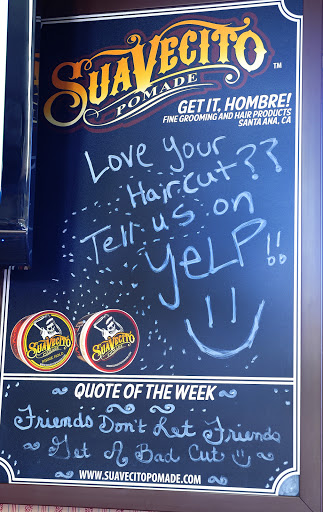 SUAVECITO™
POMADE
GET IT, HOMBRE!
FINE GROOMING AND HAIR PRODUCTS
SANTA ANA, CA
Love Your
Haircut??
Tell us on
YELP!!
SUAVECITO
SUAVECITO
QUOTE OF THE WEEK
Friends Don't Let Friends
Get A Bad Cut
WWW.SUAVECITOPOMADE.COM